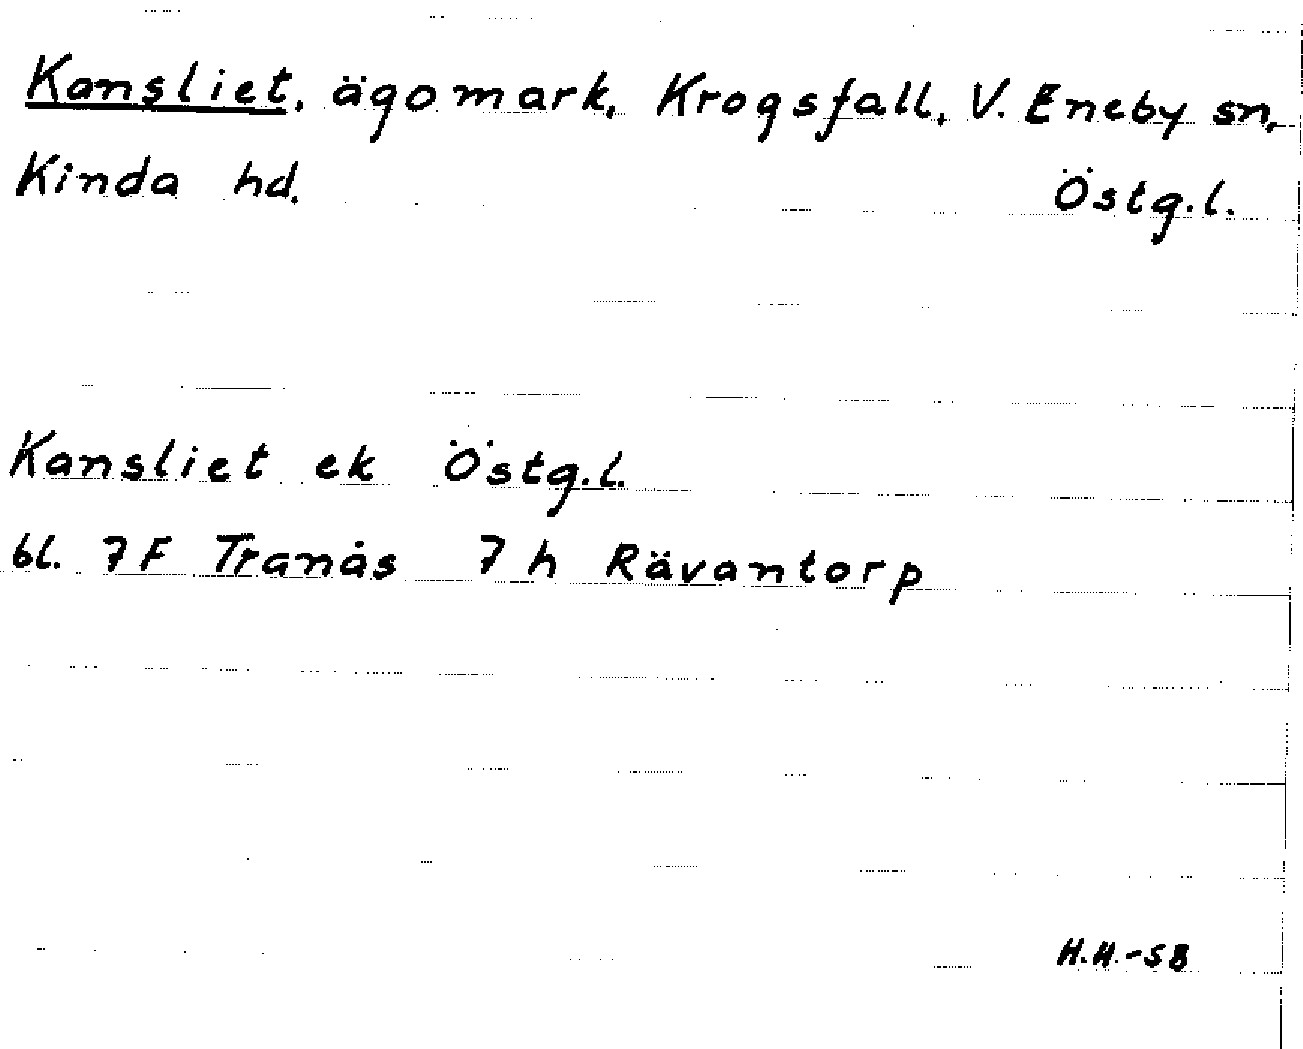 Kansliet, ägomark, Krogsfall, V. Eneby sn,
Kinda hd. Östg.l.
Kansliet ek Östg.l.
bl. 7F Tranås 7h Rävantorp
H.H.-58